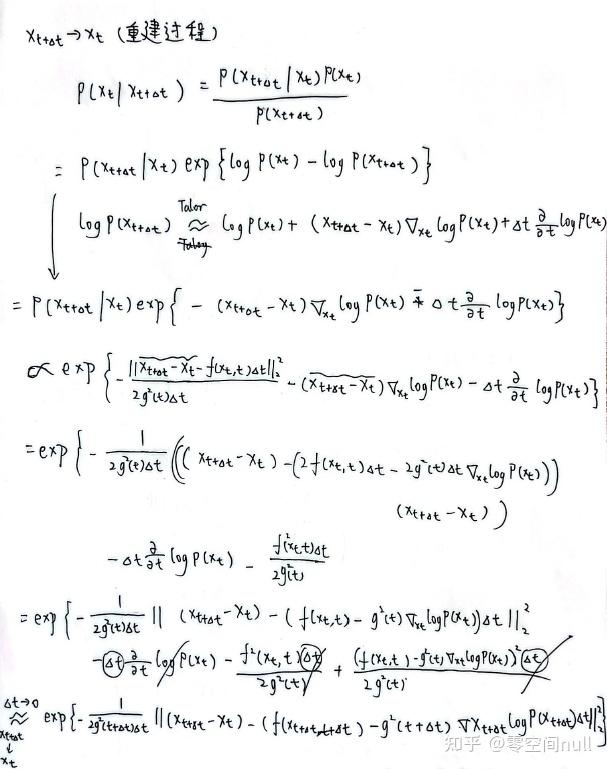 x_{t+Δt} → x_t (重建过程)
P(x_t | x_{t+Δt}) = \frac{P(x_{t+Δt} | x_t) P(x_t)}{P(x_{t+Δt})}
= P(x_{t+Δt} | x_t) exp{log P(x_t) - log P(x_{t+Δt})}
Talor
log P(x_{t+Δt}) ≈ log P(x_t) + (x_{t+Δt} - x_t) ∇_{x_t} log P(x_t) + Δt \frac{∂}{∂t} log P(x_t)
= P(x_{t+Δt} | x_t) exp{ - (x_{t+Δt} - x_t) ∇_{x_t} log P(x_t) - Δt \frac{∂}{∂t} log P(x_t)}
∝ exp{ - \frac{||x_{t+Δt} - x_t - f(x_t,t)Δt||_2^2}{2g²(t)Δt} - (x_{t+Δt} - x_t) ∇_{x_t} log P(x_t) - Δt \frac{∂}{∂t} log P(x_t)}
= exp{ - \frac{1}{2g²(t)Δt} (((x_{t+Δt} - x_t) - (2f(x_t,t)Δt - 2g²(t)Δt ∇_{x_t} log P(x_t)))
(x_{t+Δt} - x_t))
- Δt \frac{∂}{∂t} log P(x_t) - \frac{f²(x_t,t)Δt}{2g²(t)}
= exp{ - \frac{1}{2g²(t)Δt} || (x_{t+Δt} - x_t) - (f(x_t,t) - g²(t) ∇_{x_t} log P(x_t))Δt ||_2^2
- Δt \frac{∂}{∂t} log P(x_t) - \frac{f²(x_t,t)Δt}{2g²(t)} + \frac{(f(x_t,t) - g²(t) ∇_{x_t} log P(x_t))² Δt}{2g²(t)}
Δt→0
≈ exp{ - \frac{1}{2g²(t+Δt)Δt} ||(x_{t+Δt} - x_t) - (f(x_{t+Δt}, t+Δt) - g²(t+Δt) ∇x_{t+Δt} log P(x_{t+Δt}))Δt||_2^2}
x_{t+Δt}
↓
x_t
知乎 @零空间null